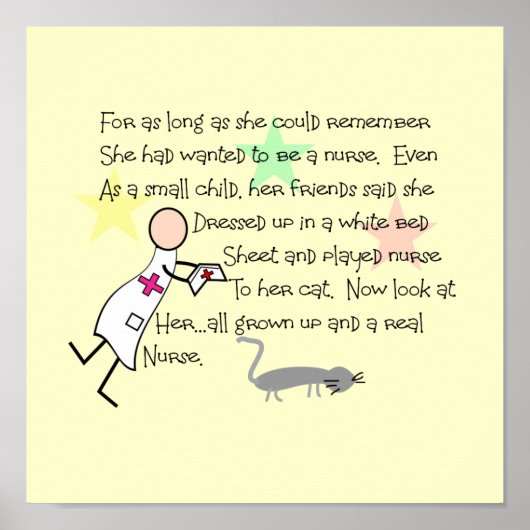 For as long as she could remember
She had wanted to be a nurse. Even
As a small child, her friends said she
Dressed up in a white bed
Sheet and played nurse
To her cat. Now look at
Her...all grown up and a real
Nurse.